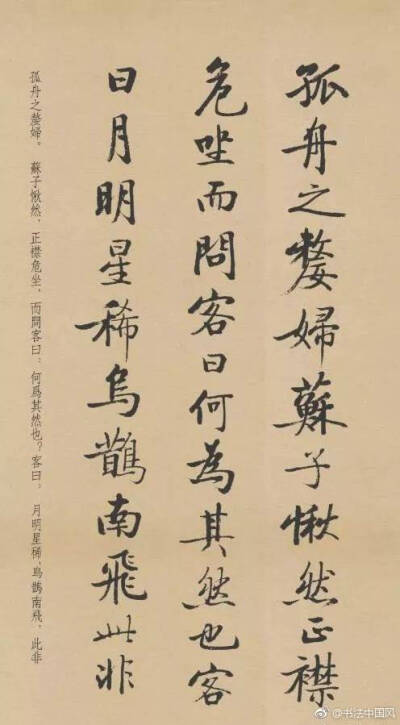 孤舟之嫠婦蘇子愀然正襟
危坐而問客曰何為其然也客
曰月明星稀烏鵲南飛此非
孤舟之嫠婦。蘇子愀然，正襟危坐，而問客曰：何爲其然也？客曰：月明星稀，烏鵲南飛，此非
@书法中国风